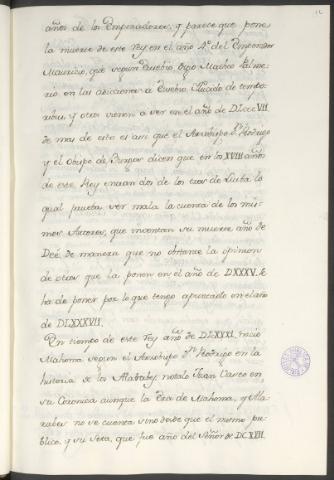 12
años de los Emperadores, y parece que pone
la muerte de este Rey en el año 4º del Emperador
Mauricio, que segun Eusebio, digo Matheo Palme
rio en las adiciones a Eusebio
y otros vienen a ser en el año de DLxxxVII.
de mas de esto es asi que el Arzobispo Dn. Rodrigo
y el Obispo de Burgos dicen que en los XVIII años
de este Rey entran dos de los tres de Liuba lo
qual prueba ser mala la cuenta de los mis
mos Autores, que cuentan su muerte año de
de manera que no obstante la opinion
de otros que la ponen en el año de DXXXV. se
ha de poner por lo que tengo apuntado en el año
de DLXXXVII.
En tiempo de este Rey año de DLXXXI. nació
Mahoma segun el Arzobispo Dn. Rodrigo en la
historia de los Alarabes, notalo Juan Vaseo en
su Coronica aunque la Era de Mahoma, y Ala
rabes no se cuenta sino desde que el mismo pu
blico, y su Seta, que fue año del Señor de DCXVII.